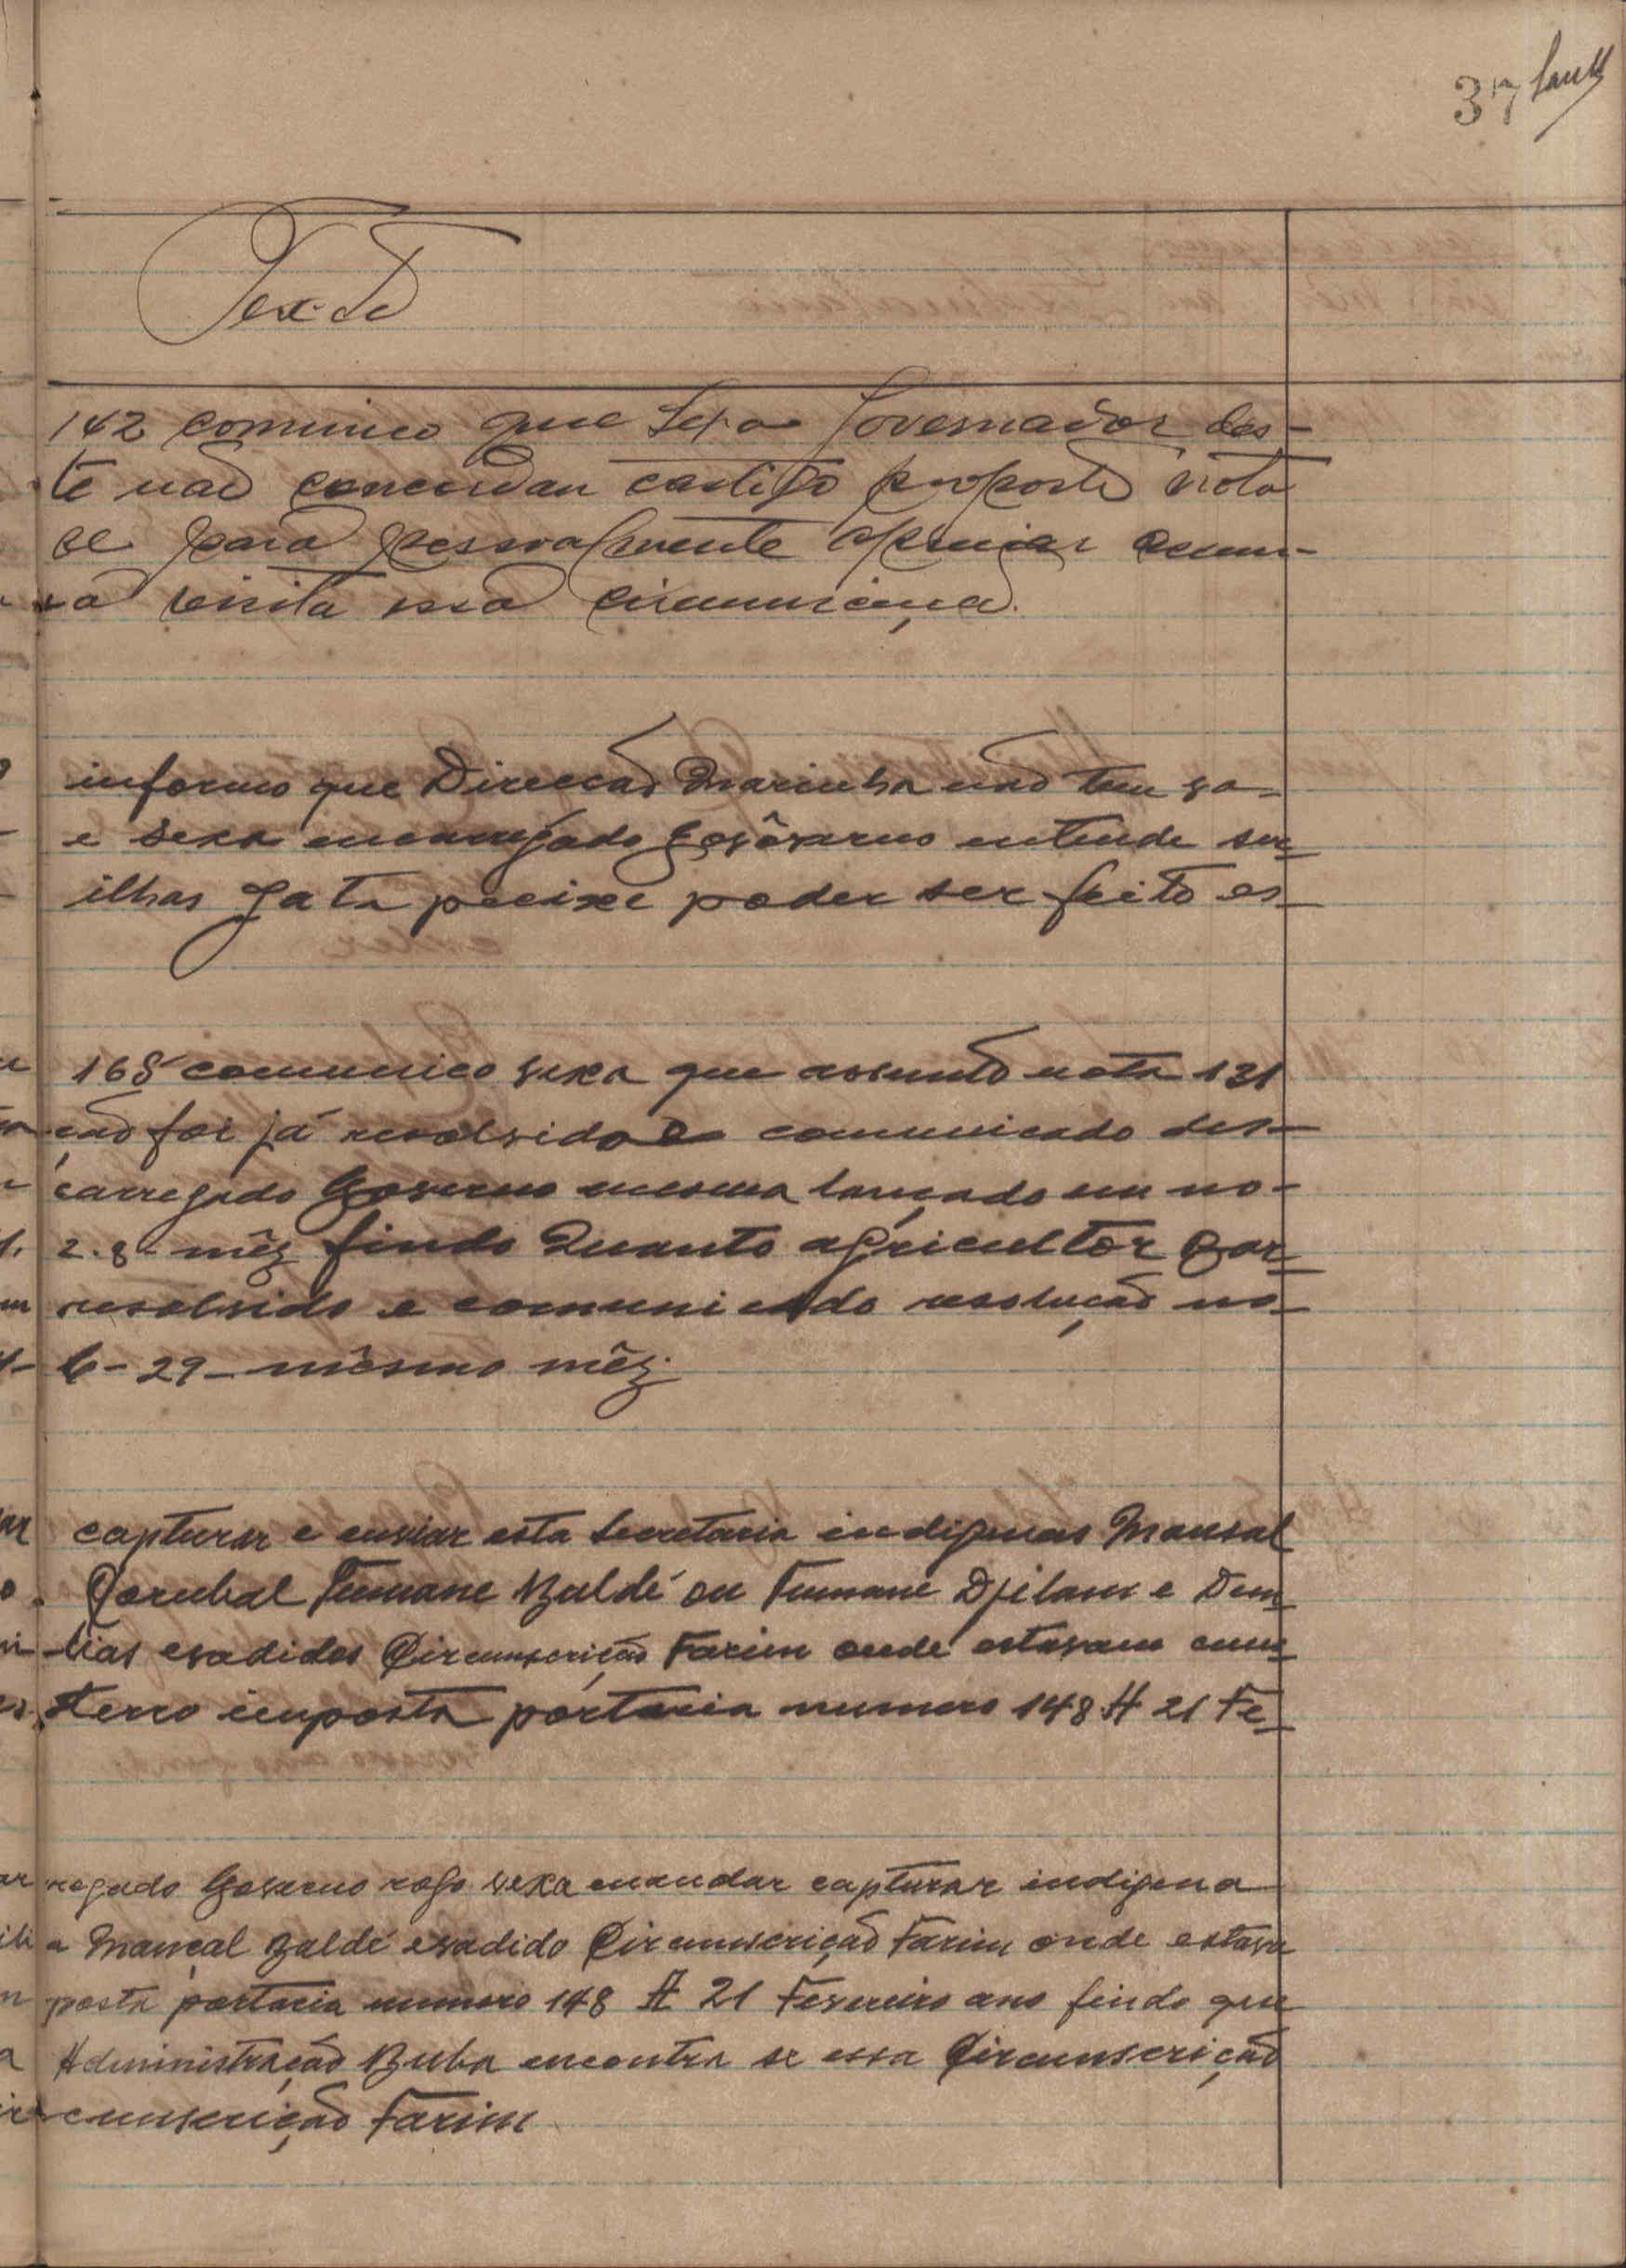 37
Texto
142 comunico que Sexa Governador des-
te não concordou castigo proposto nota
se para pessoalmente apreciar
visita essa
informo que Direcção Marinha não tem va-
e sexa encarregado Govêrno entende ser
ilhas Gata peeixe poder ser feito es-
168 comunico sexa que assunto nota 131
ção foi já resolvido e comunicado des-
carregado Governo mesma lançado em no-
2.8 - mêz findo Quanto agricultor Bar-
resolvido e comunicado resolução no-
6 - 29 - mêsmo mêz.
capturar e enviar esta Secretaria indigenas Mansal
Corubal Tumane Baldé ou Tumane Djilam e Dem-
tias evadidos Circunscrição Farim onde estavam cum-
terro imposta portaria numero 148 A 21 Fe-
regado Governo rogo sexa mandar capturar indigena
a Mançal Baldé evadido Circunscrição Farim onde estava
posta portaria numero 148 A 21 Fevereiro ano findo que
Administração Buba encontra se essa Circunscrição
cunscrição Farim